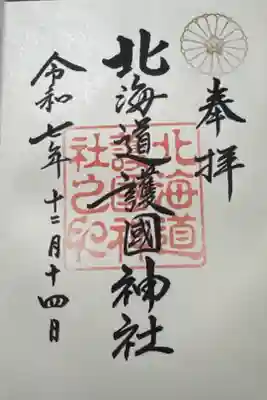 奉拝
北海道護國神社
北海道護國神社之印
令和七年十二月十四日